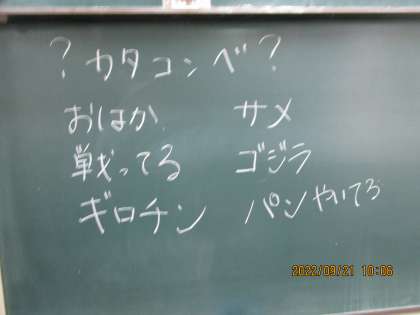 ?カタコンベ?
おはか サメ
戦ってる ゴジラ
ギロチン パンやいてろ
2022/09/21 10:06